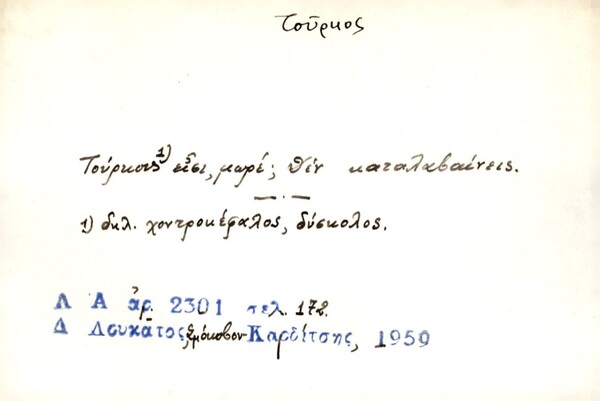 Τοῦρκος
Τούρκους 1) εἶσι, μωρέ; Θὲν καταλαβαίνεις.
1) δηλ. χοντροκέφαλος, δύσκολος.
Λ Α ἀρ. 2301 σελ. 172.
Δ Λουκᾶτος, Σμόκοβον Καρδίτσης, 1959